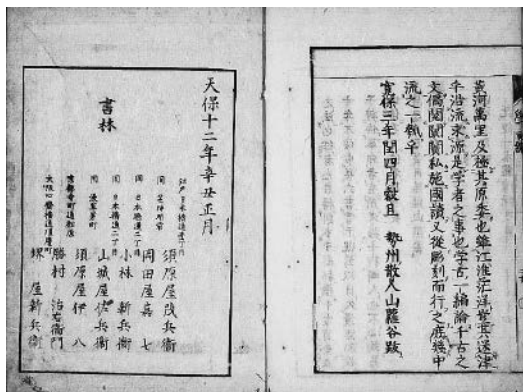 黄河萬里及極其原委也雖江淮茫洋豈其迷津
乎沿流求源是学者之事也学古一編論千古之
文偶閲関関私施國讀又從彫刻而行之庶幾中
流之一瓠乎
寛保三年閏四月穀旦 勢州散人山蘿谷跋
天保十二年辛丑正月
書林
江戸日本橋通壱丁目 須原屋茂兵衛
同 芝神明前 岡田屋嘉七
同 日本橋通二丁目 小林新兵衛
同 日本橋通二丁目 山城屋佐兵衛
同 浅草茅町 須原屋伊八
京都寺町通松原 勝村治右衛門
大阪心斎橋通 堺屋新兵衛